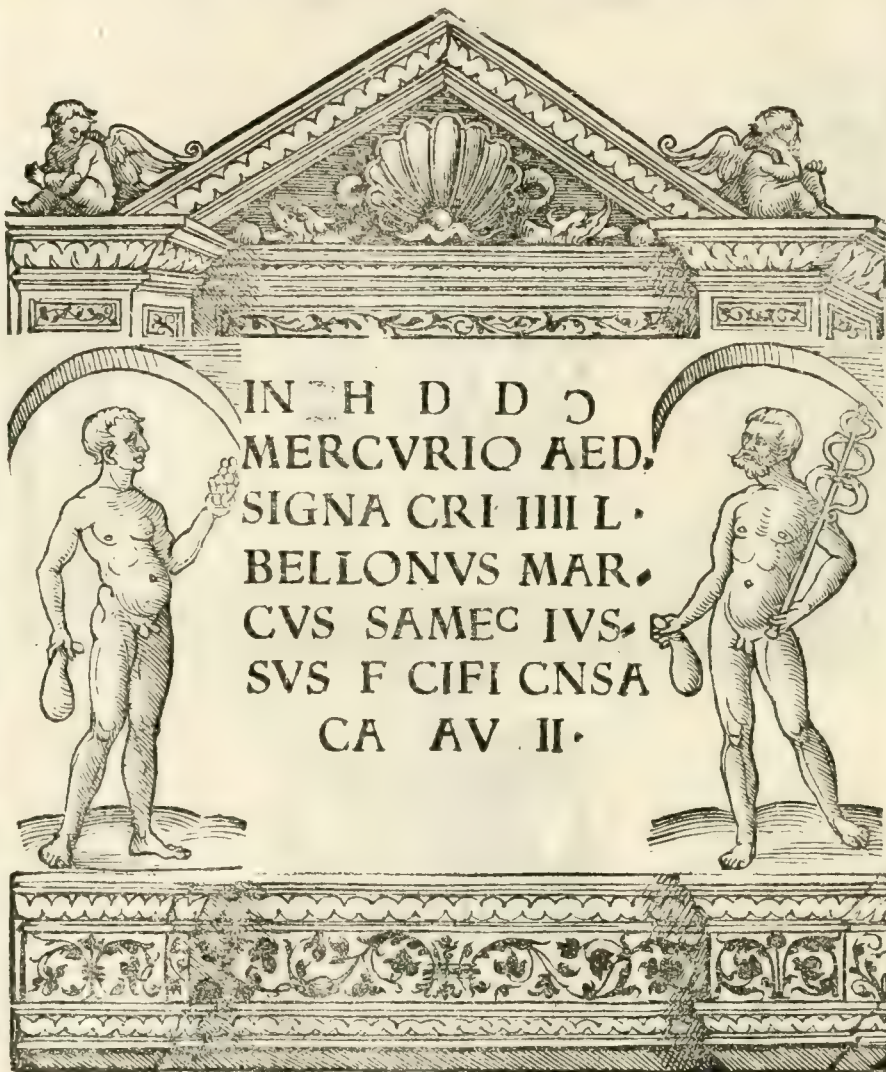 IN H D D Ɔ
MERCVRIO AED.
SIGNA CRI IIII L·
BELLONVS MAR.
CVS SAMEC IVS.
SVS F CIFI CNSA
CA AV II·